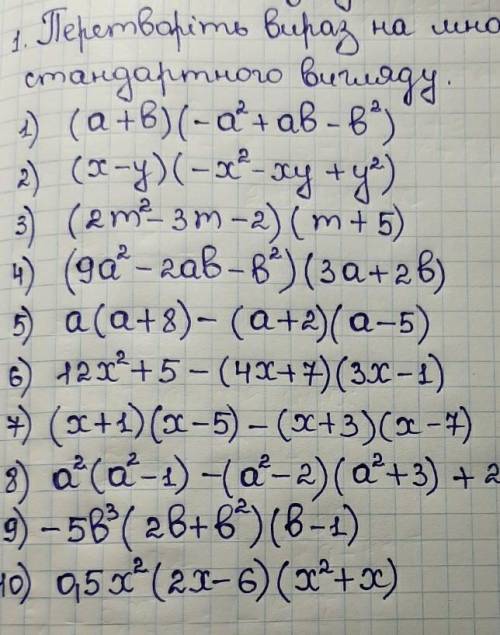 1. Перетворіть вираз на мно
стандартного вигляду.
1) (a+b)(-a²+ab-b²)
2) (x-y)(-x²-xy+y²)
3) (2m²-3m-2)(m+5)
4) (9a²-2ab-b²)(3a+2b)
5) a(a+8)-(a+2)(a-5)
6) 12x²+5-(4x+7)(3x-1)
7) (x+1)(x-5)-(x+3)(x-7)
8) a²(a²-1)-(a²-2)(a²+3)+2
9) -5b³(2b+b²)(b-1)
10) 0,5x²(2x-6)(x²+x)